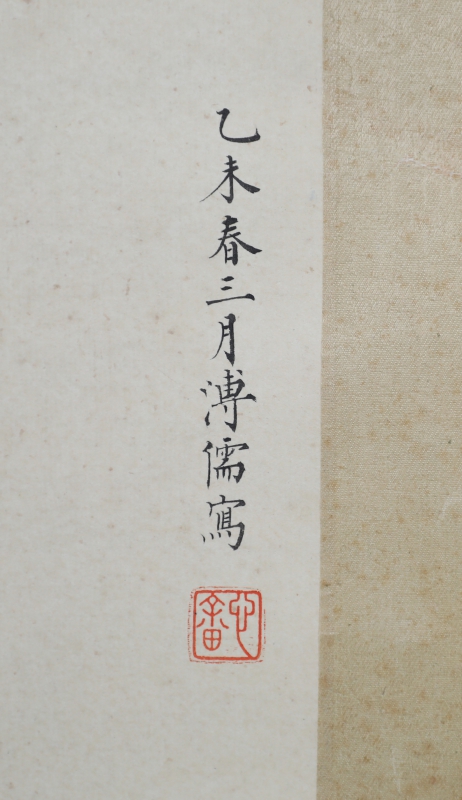 乙未春三月溥儒寫